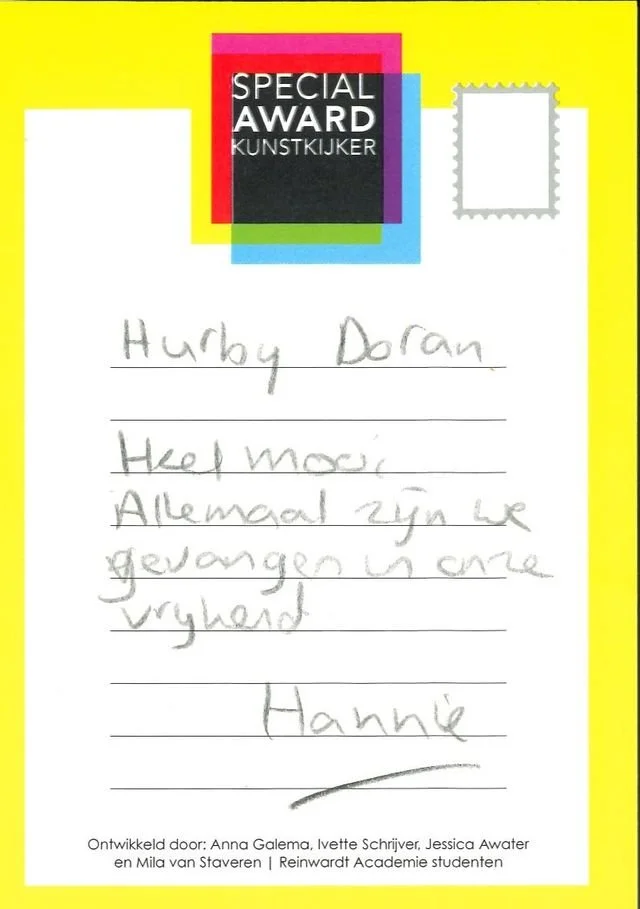 SPECIAL
AWARD
KUNSTKIJKER
Hurby Doran
Heel mooi
Allemaal zijn we
gevangen in onze
vrijheid
Hannie
Ontwikkeld door: Anna Galema, Ivette Schrijver, Jessica Awater
en Mila van Staveren | Reinwardt Academie studenten